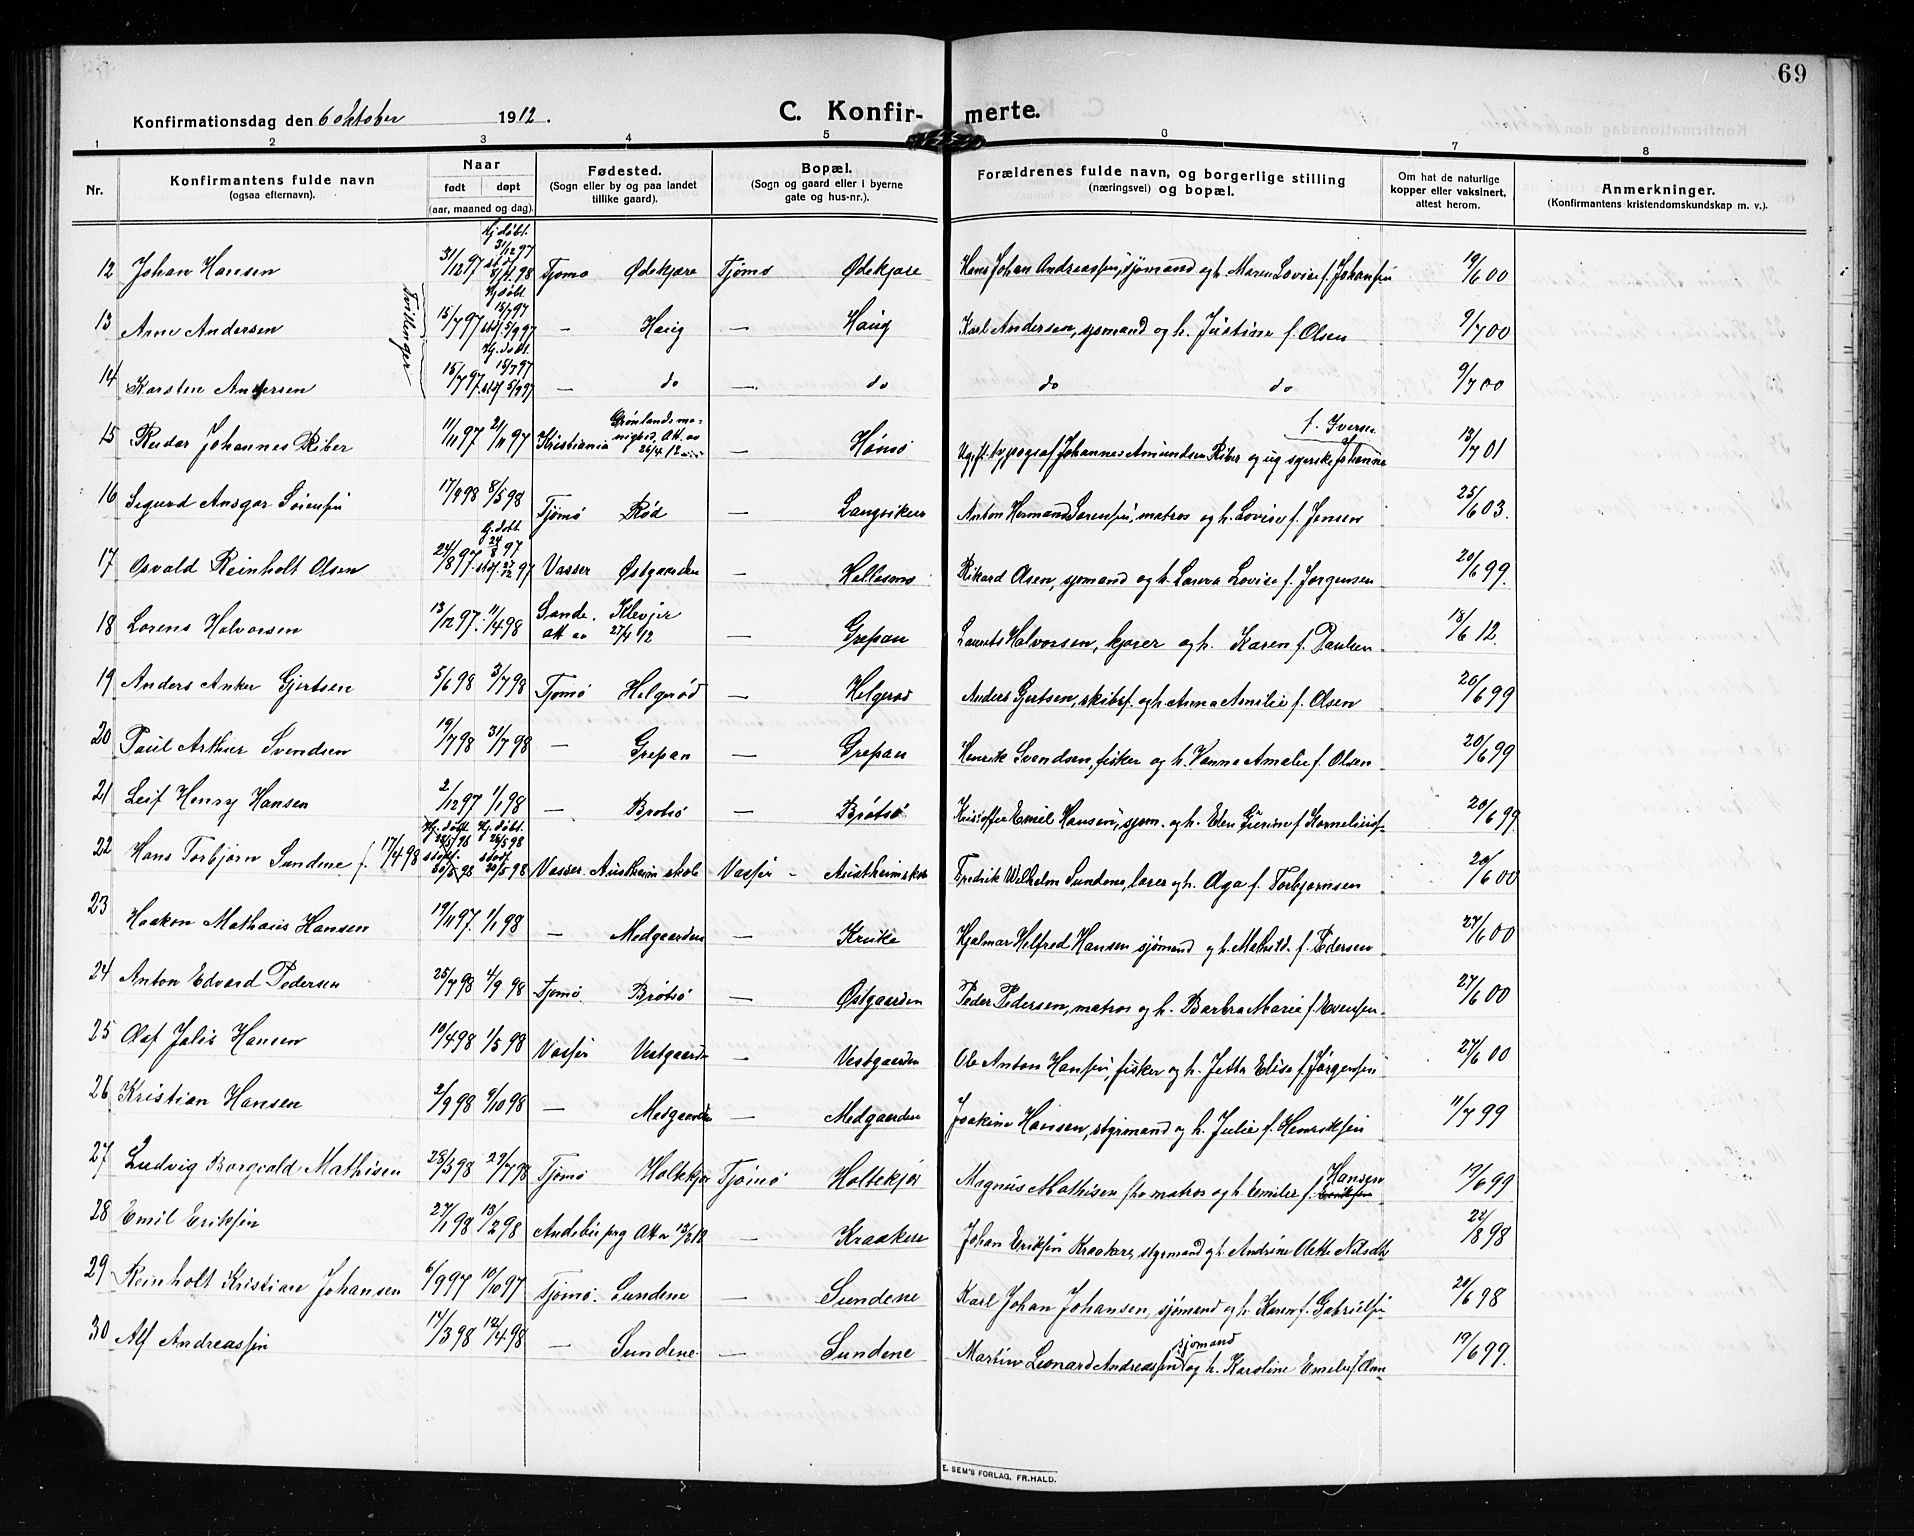 69
Konfirmationsdag den 6 Oktober 1912.
C. Konfirmerte.
1 2 3 4 5 6 7 8
Nr.
Konfirmantens fulde navn (ogsaa efternavn).
Naar født døpt (aar, maaned og dag).
Fødested. (Sogn eller by og paa landet tillike gaard).
Bopæl. (Sogn og gaard eller i byerne gate og hus-nr.).
Forældrenes fulde navn, og borgerlige stilling (næringsvei) og bopæl.
Om hat de naturlige kopper eller vaksinert, attest herom.
Anmerkninger. (Konfirmantens kristendomskundskap m. v.).
12 Johan Hansen 31/12 97 Hj. døbt 31/12 97 stadf. 8/4 98 Tjømø Ødekjære Tjømø Ødekjære Hans Johan Andreassen, sjømand og h. Maren Lovise f. Johansen 19/6 00
Tvillinger
13 Arne Andersen 15/7 97 Hj. døbt 15/7 97 stdf. 5/9 97 — Haug — Haug Karl Andersen, sjømand og h. Justine f. Olsen 9/7 00
14 Karsten Andersen 15/7 97 Hj. døbt 15/7 97 stdf 5/9 97 — do — do do do 9/7 00
15 Reidar Johannes Riber 11/11 97 21/11 97 Kristiania Grønlands menighed. Att. av 26/4 12 — Hønsø Ugift typograf Johannes Amundsen Riber og ug syerske Johanne f. Iversen 13/7 01
16 Sigurd Ansgar Sörensen 17/4 98 8/5 98 Tjømø Rød — Langviken Anton Hermand Sørensen, matros og h. Lovise f. Jensen 25/6 03.
17 Osvald Reinholt Olsen 24/8 97 Hj. døbt 24/8 97 stdf. 27/12 97 Vasser Østgaarden — Hellesmo Rikard Olsen, sjømand og h. Laura Lovise f. Jørgensen 20/6 99.
18 Lorens Halvorsen 13/12 97. 11/4 98 Sande. Klevjer att av 27/4 12 — Grepan Laurits Halvorsen, kjører og h. Karen f. Paulsen 18/6 12.
19 Anders Anker Gjertsen 5/6 98 3/7 98 Tjømø Helgerød — Helgerød Anders Gjertsen, skibsf. og h. Anna Amilie f. Olsen 20/6 99
20 Paul Arthur Svendsen 19/7 98 31/7 98 — Grepan — Grepan Henrik Svendsen, fisker og h. Hanna Amalie f. Olsen 20/6 99
21 Leif Henry Hansen 2/12 97 1/1 98 — Brøtsø — Brøtsø Kristoffer Emil Hansen, sjøm. og h. Elen Gurine f. Korneliusf 20/6 99
22 Hans Torbjørn Sundene f. 17/4 98 Hj. døbt 26/5 98 stadf. 30/5 98 Hj. døbt 26/5 98 stadf. 30/5 98 Vasser Austheim skole Vasser — Austheim skole Fredrik Wilhelm Sundene, lærer og h. Aga f. Torbjørnsen 20/6 00
23 Haakon Mathæus Hansen 19/11 97. 1/1 98 — Medgaarden — Kruke Hjalmar Helfred Hansen sjømand og h. Mathild. f. Pedersen 27/6 00
24 Anton Edvard Pedersen 25/7 98 4/9 98 Tjømø Brøtsø — Østgaarden Peder Pedersen, matros og h. Barbra Marie f. Evensen 27/6 00
25 Olaf Julis Hansen 10/4 98 1/5 98 Vasser Vestgaarden — Vestgaarden Ole Anton Hansen, fisker og h. Jetta Elise f. Jørgensen 27/6 00
26 Kristian Hansen 2/9 98 9/10 98 — Medgaarden — Medgaarden Joakim Hansen, styrmand og h. Julie f. Henriksen 11/7 99
27 Ludvig Borgvald Mathisen 28/3 98 29/7 98 Tjømø Holtekjær Tjømø Holtekjær Magnus Mathisen matros og h. Emilie f. Hansen 19/6 99
28 Emil Eriksen 27/1 98 13/2 98 Andebu prg Att av 13/2 12 — Kraakere Johan Eriksen Kraakere, styrmand og h. Andrine Olette Nilsdtr 22/8 98
29 Reinholt Kristian Johansen 6/9 97 10/10 97 Tjømø. Sundene — Sundene Karl Johan Johansen, sjømand og h. Karen f. Gabrielsen 20/6 98
30 Alf Andreassen 14/3 98 12/4 98 — Sundene — Sundene Martin Leonard Andreassen sjømand og h. Karoline Emelie f. Olsen 19/6 99.
E. SEM'S FORLAG, FR.HALD.